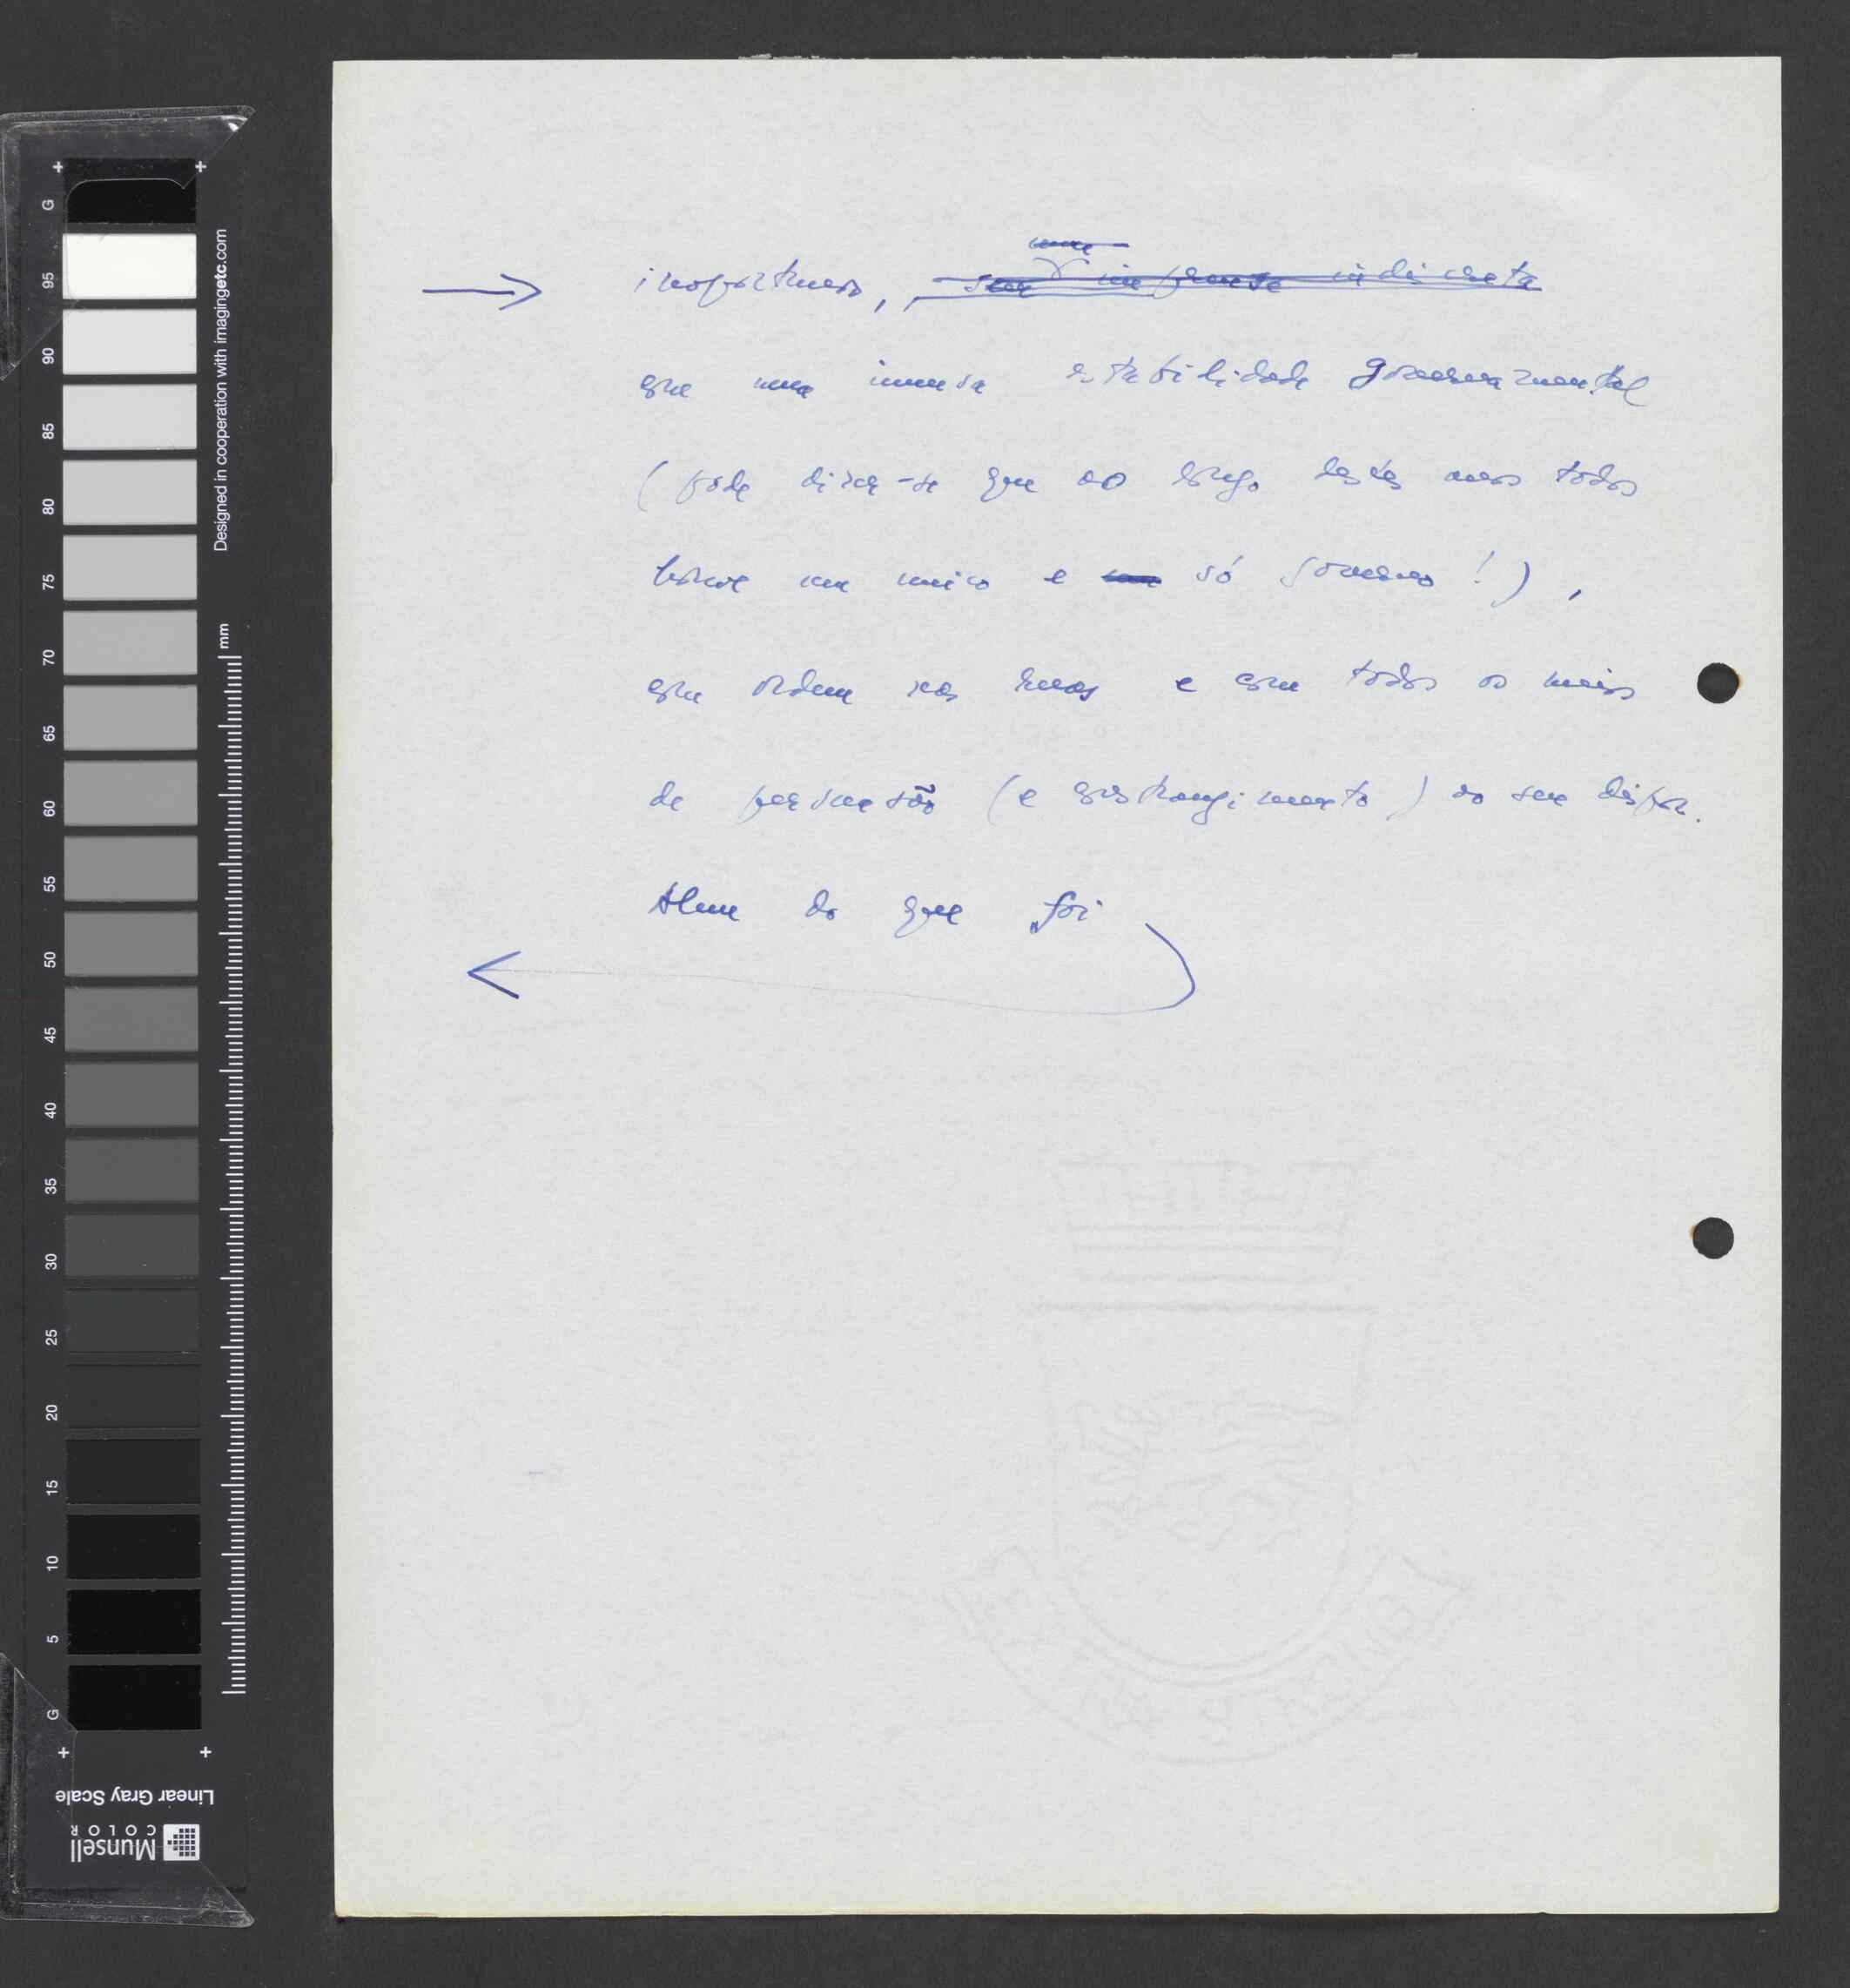 inoportunos, sem uma imprensa indiscreta
com uma imensa estabilidade governamental
(pode dizer-se que ao longo destes anos todos
houve um único e só governo!),
com ordem nas ruas e com todos os meios
de persuasão (e constrangimento) ao seu dispor.
Alem do que foi
Designed in cooperation with imagingetc.com
mm
G
95
90
85
80
75
70
65
60
55
50
45
40
35
30
25
20
15
10
5
G
Linear Gray Scale
Munsell
COLOR